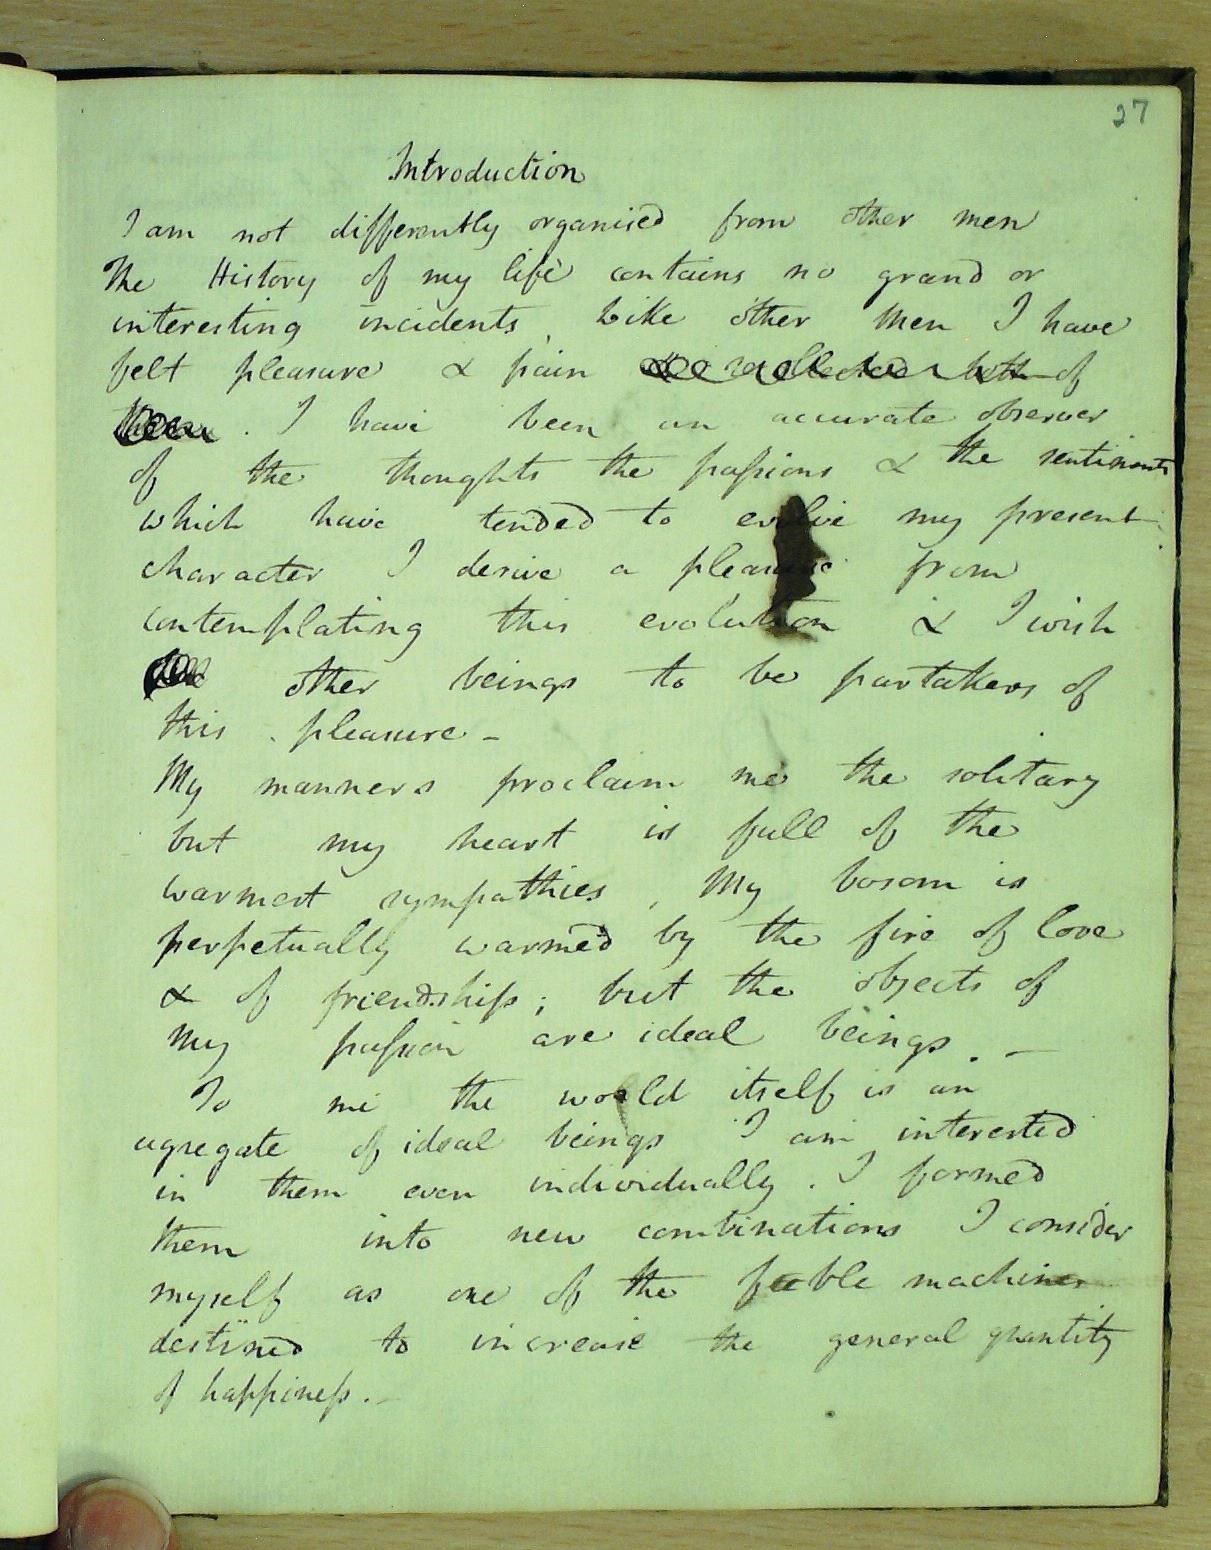 27
Introduction
I am not differently organised from other men
The History of my life contains no grand or
interesting incidents, Like other Men I have
felt pleasure & pain of
them. I have been an accurate observer
of the thoughts the passions & the sentiments
which have tended to evolve my present
character I derive a pleasure from
contemplating this evolution & I wish
other beings to be partakers of
this pleasure -
My manners proclaim me the solitary
but my heart is full of the
warmest sympathies, My bosom is
perpetually warmed by the fire of love
& of friendship; but the objects of
my passion are ideal beings. -
To me the world itself is an
agregate of ideal beings I am interested
in them even individually. I formed
them into new combinations I consider
myself as one of the feeble machines
destined to increase the general quantity
of happiness. -